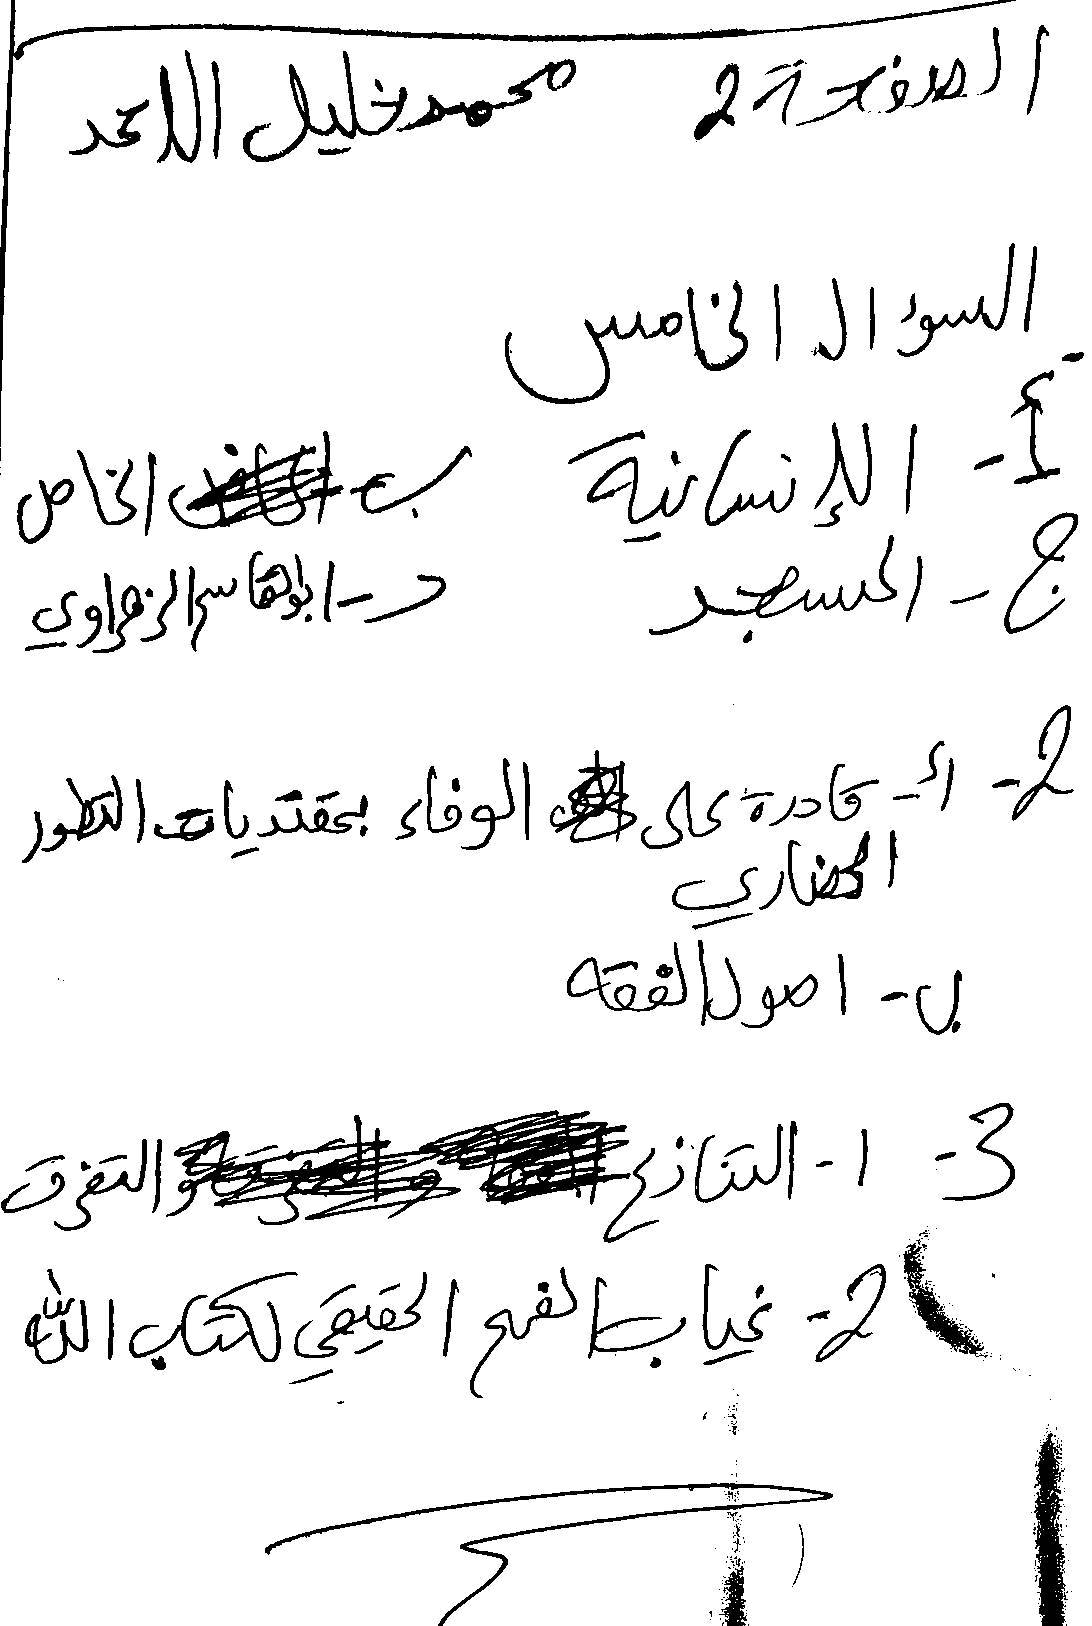 الصفحة 2 محمد خليل الاحمد
السؤال الخامس
أ- الإنسانية ب- الخاص
ج- المسجد د- ابو القاسم الزهراوي
2- أ- قادرة على الوفاء بمقتديات التطور
الحضاري
ب- اصول الفقه
3- 1- التنازع والتفرق
2- غياب الفهم الحقيقي لكتاب الله